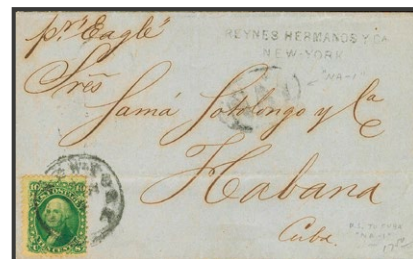 pr "Eagle"
REYNES HERMANOS Y CA
NEW-YORK
Sres
Samá Sotolongo y Ca
Habana
Cuba.
NEW YORK
10 10